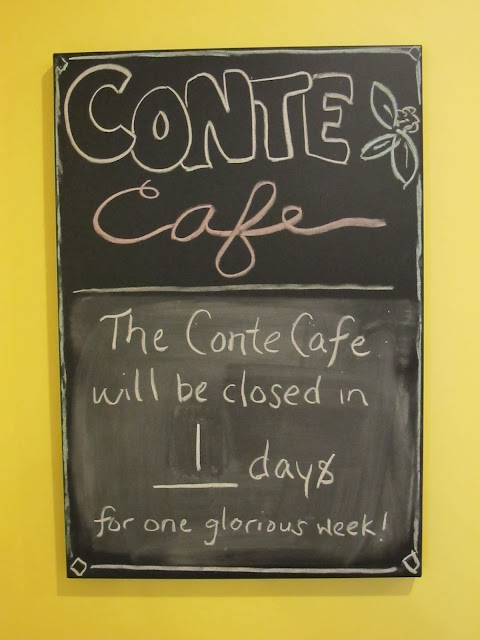 CONTE
Cafe
The Conte Cafe
will be closed in
1 days
for one glorious week!